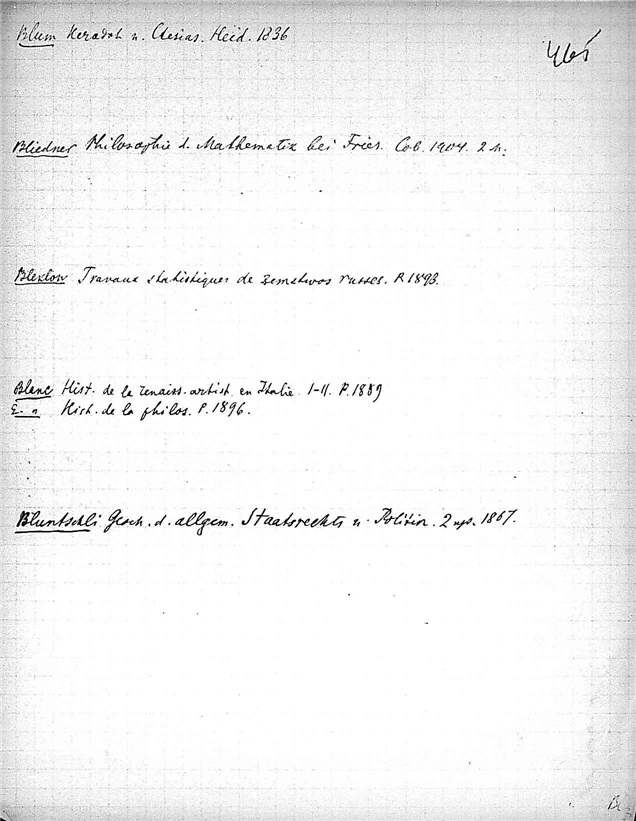 Blum Herodot u. Ctesias. Heid. 1836
465
Bliedner Philosophie d. Mathematik bei Fries. Cob. 1904. 2 n.
Bleklov Travaux statistiques de zemstwos russes. P. 1893.
Blanc Hist. de la renaiss. artist. en Italie I-II. P. 1889
E. " Hist. de la philos. P. 1896.
Bluntschli Gesch. d. allgem. Staatsrechts u. Politik. 1867.